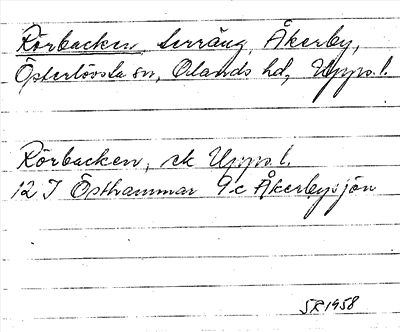 Rörbacken, terräng, Åkerby,
Österlövsta sn, Olands hd, Upps. l.
Rörbacken, ek Upps l.
12 I Östhammar 9 c Åkerbysjön
SR 1958